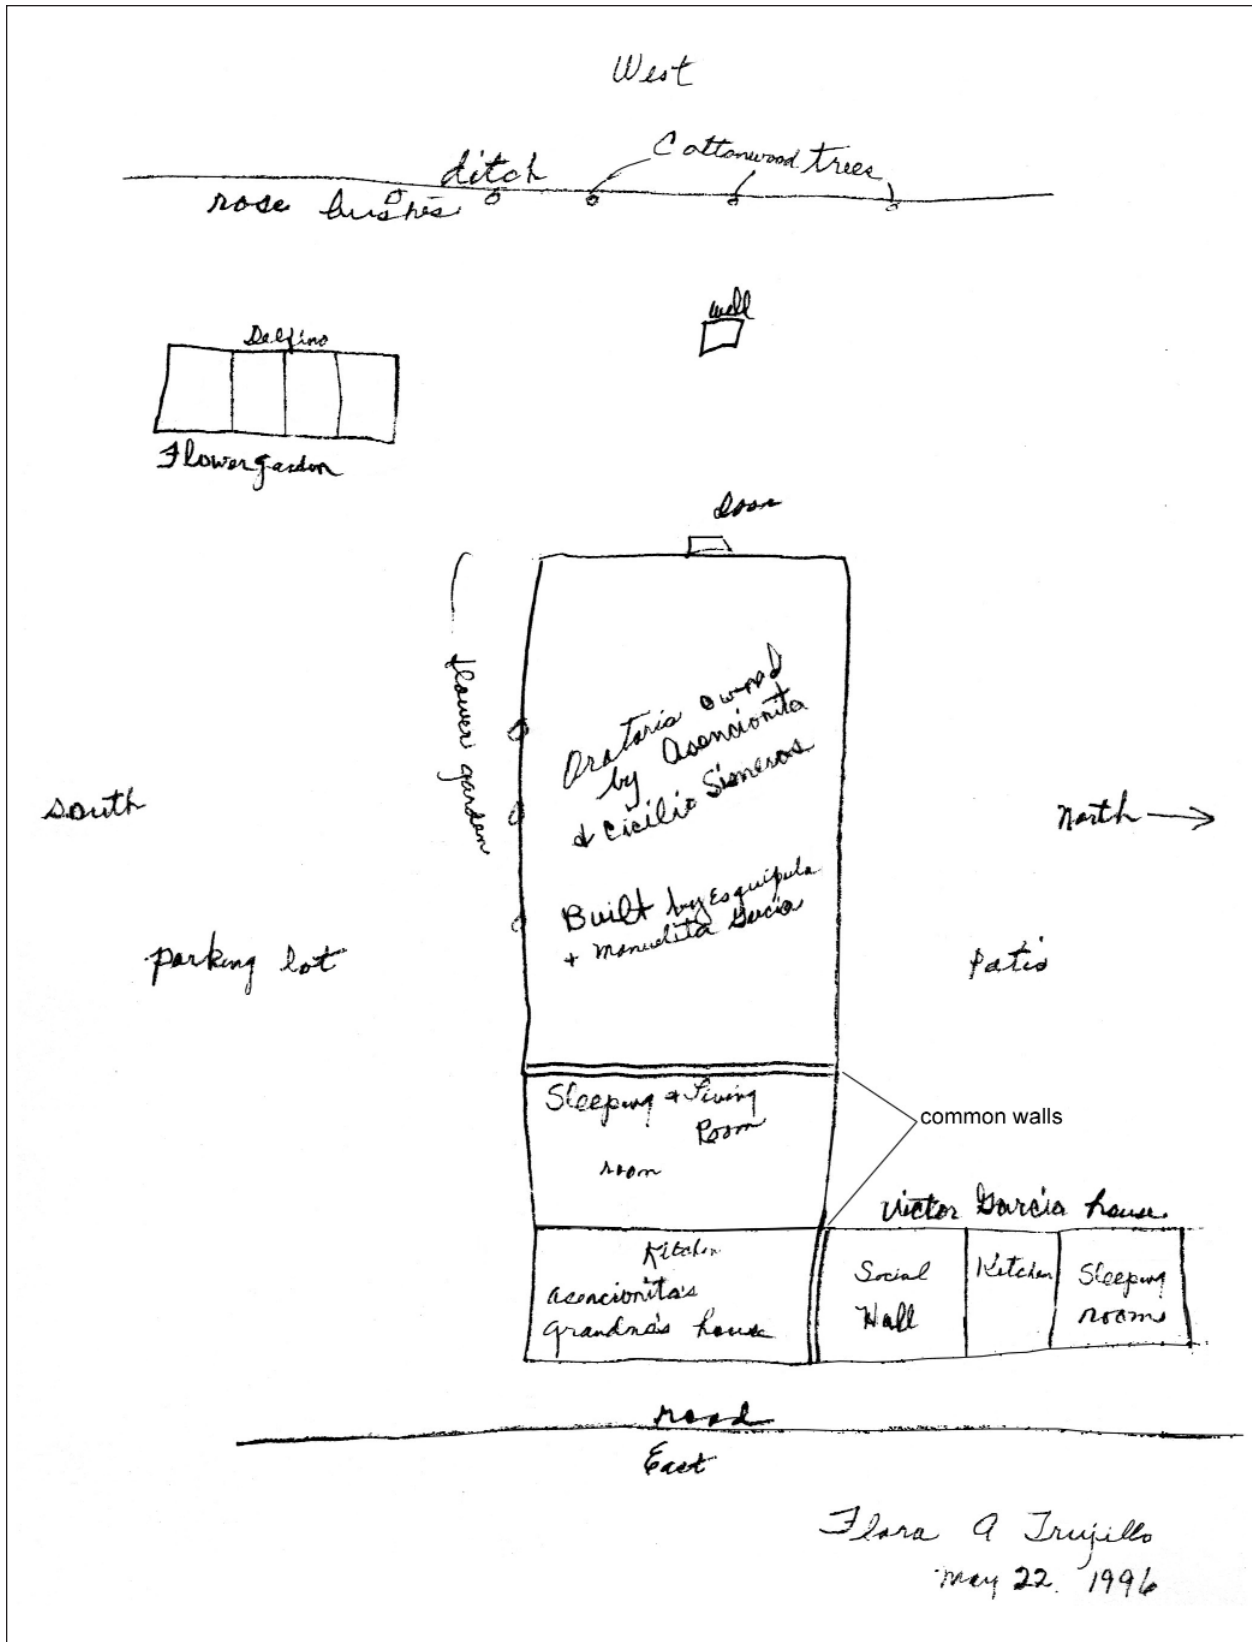 West
Cottonwood trees
ditch
rose bushes
well
Delfino
Flower garden
door
flower garden
Oratorio owned
by Asencionita
& Cicilio Sisneros
Built by Esquipula
+ Manuelita Garcia
south
North
parking lot
Patio
Sleeping & Living
Room
room
common walls
Victor Garcia house
Kitchen
Asencionita's
grandma's house
Social
Hall
Kitchen
Sleeping
rooms
road
East
Flora A Trujillo
May 22. 1996